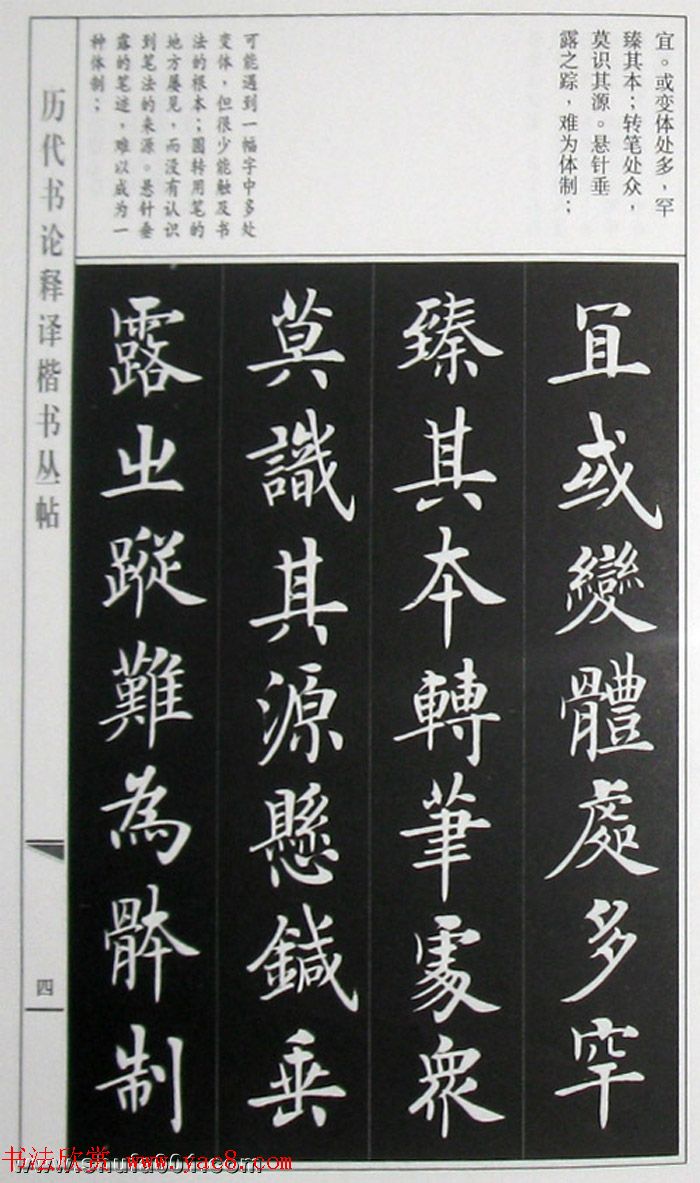 宜。或变体处多，罕
臻其本；转笔处众，
莫识其源。悬针垂
露之踪，难为体制；
可能遇到一幅字中多处
变体，但很少能触及书
法的根本；圆转用笔的
地方屡见，而没有认识
到笔法的来源。悬针垂
露的笔迹，难以成为一
种体制；
宜或變體處多罕
臻其本轉筆處衆
莫識其源懸鍼垂
露之蹤難為骵制
历代书论释译楷书丛帖
四
书法欣赏 www.yac8.com